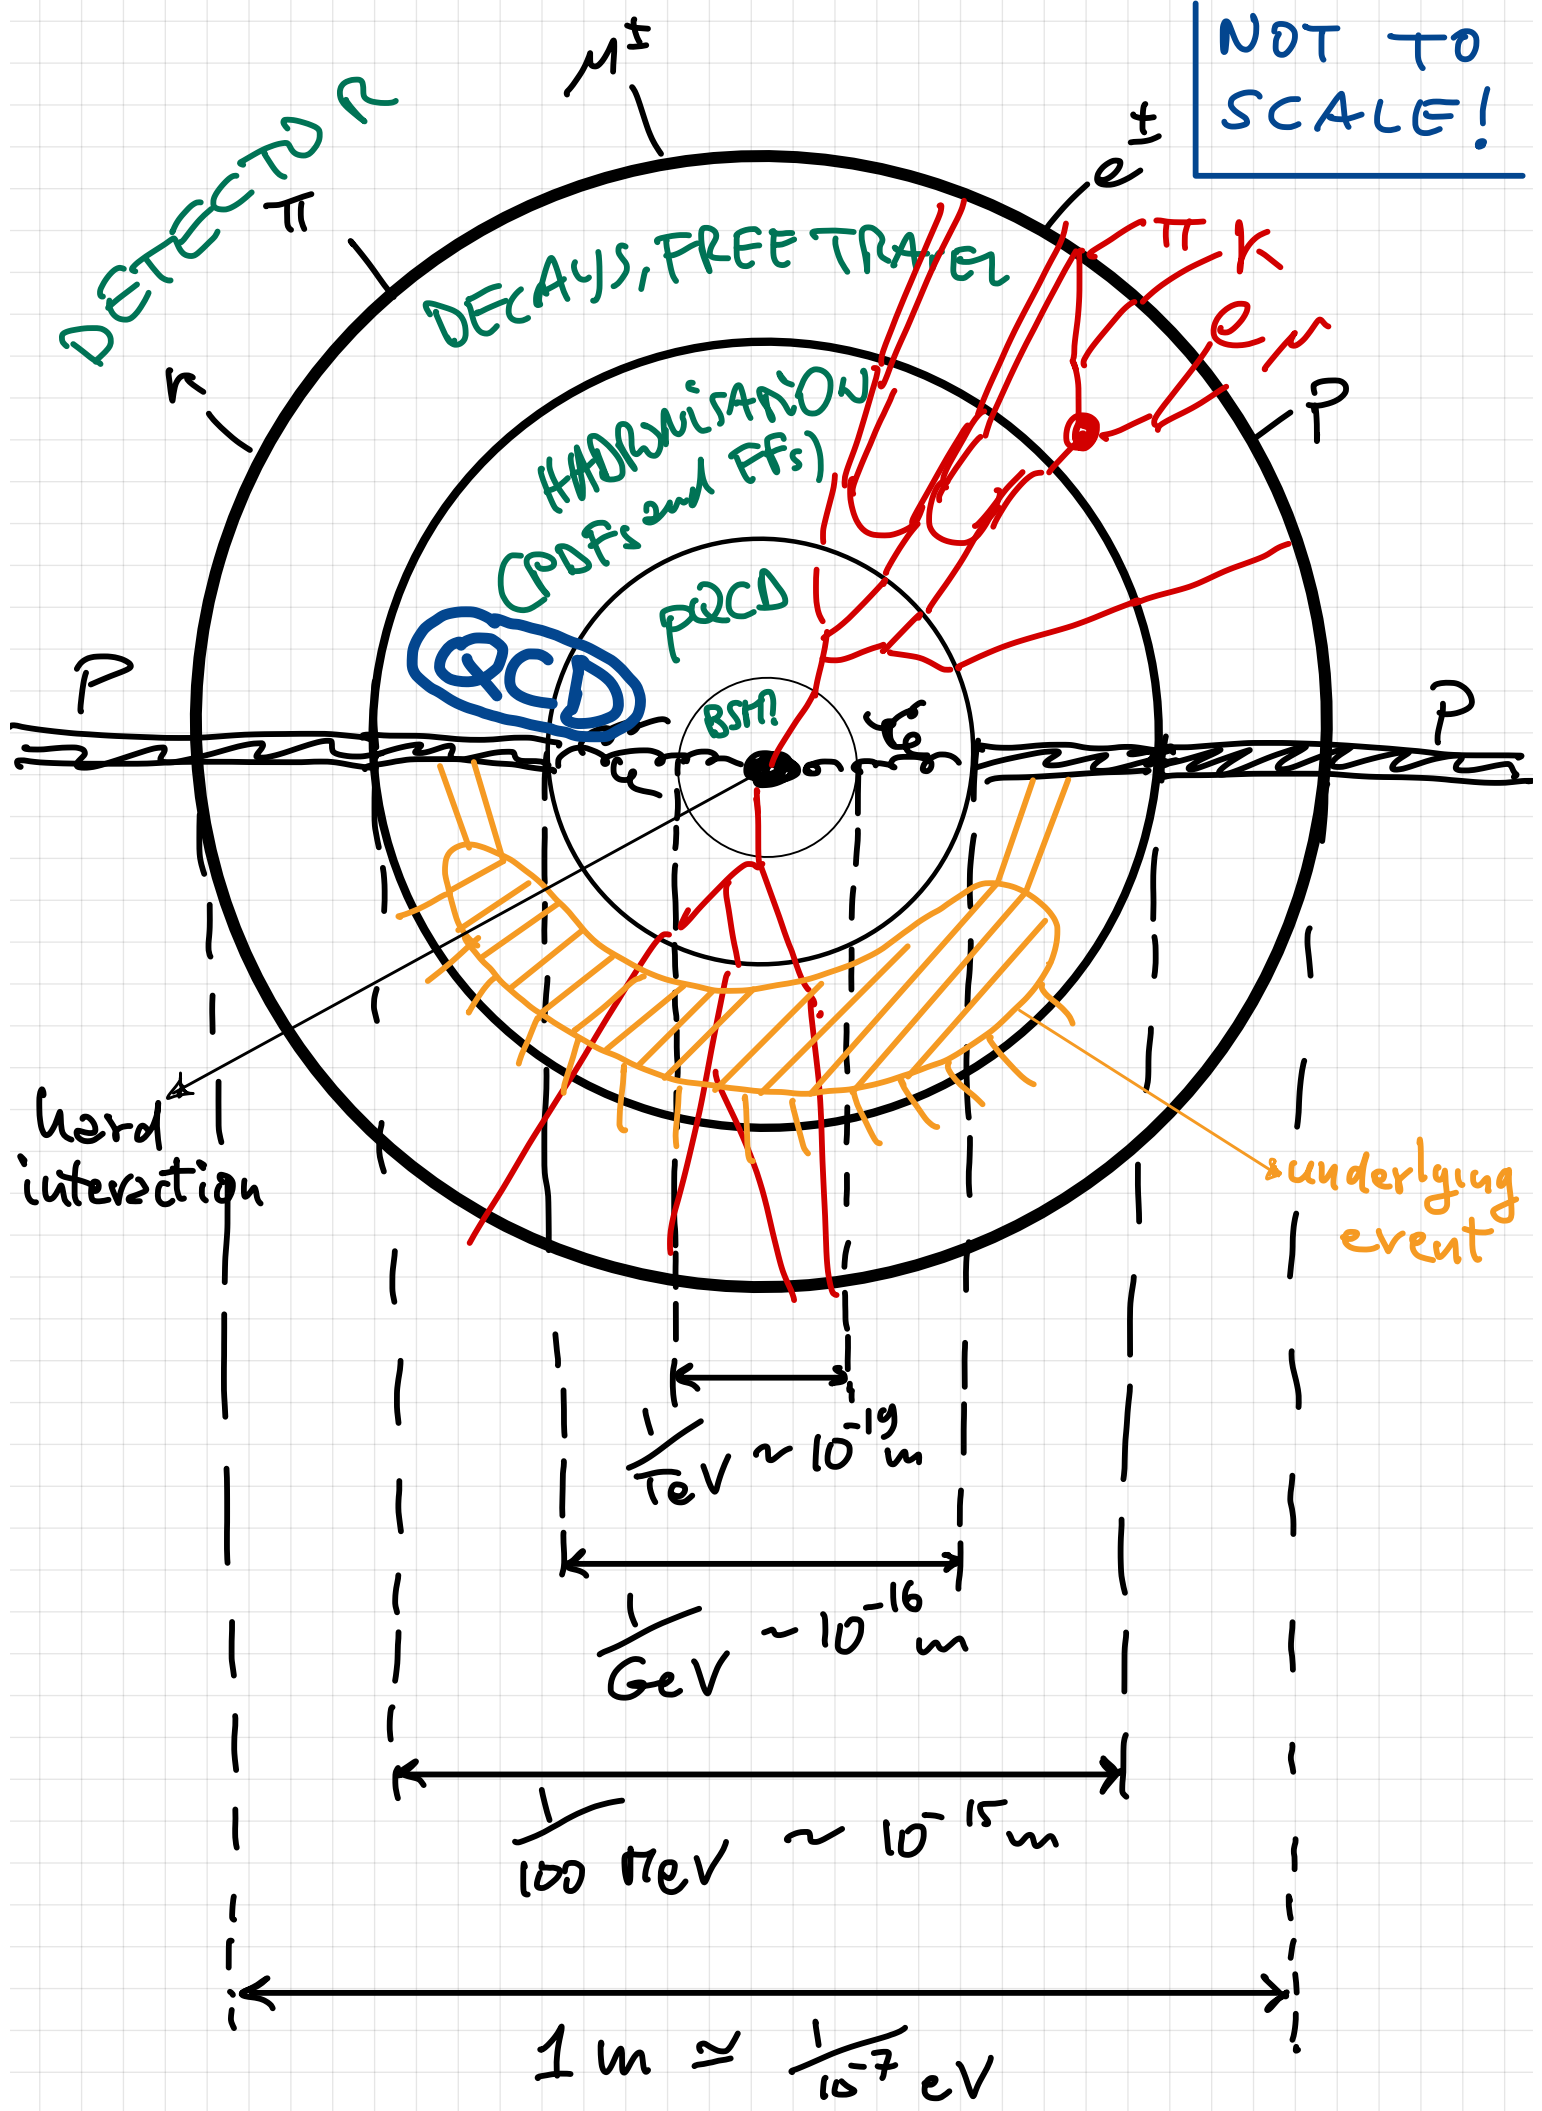 NOT TO
SCALE!
μ±
e±
DETECTOR
π
DECAYS, FREE TRAVEL
π K
e μ
P
HADRONISATION
(PDFs and FFs)
pQCD
QCD
BSM?
P
P
hard
interaction
underlying
event
1/TeV ~ 10⁻¹⁹ m
1/GeV ~ 10⁻¹⁶ m
1/100 MeV ~ 10⁻¹⁵ m
1 m ≃ 1/10⁻⁷ eV